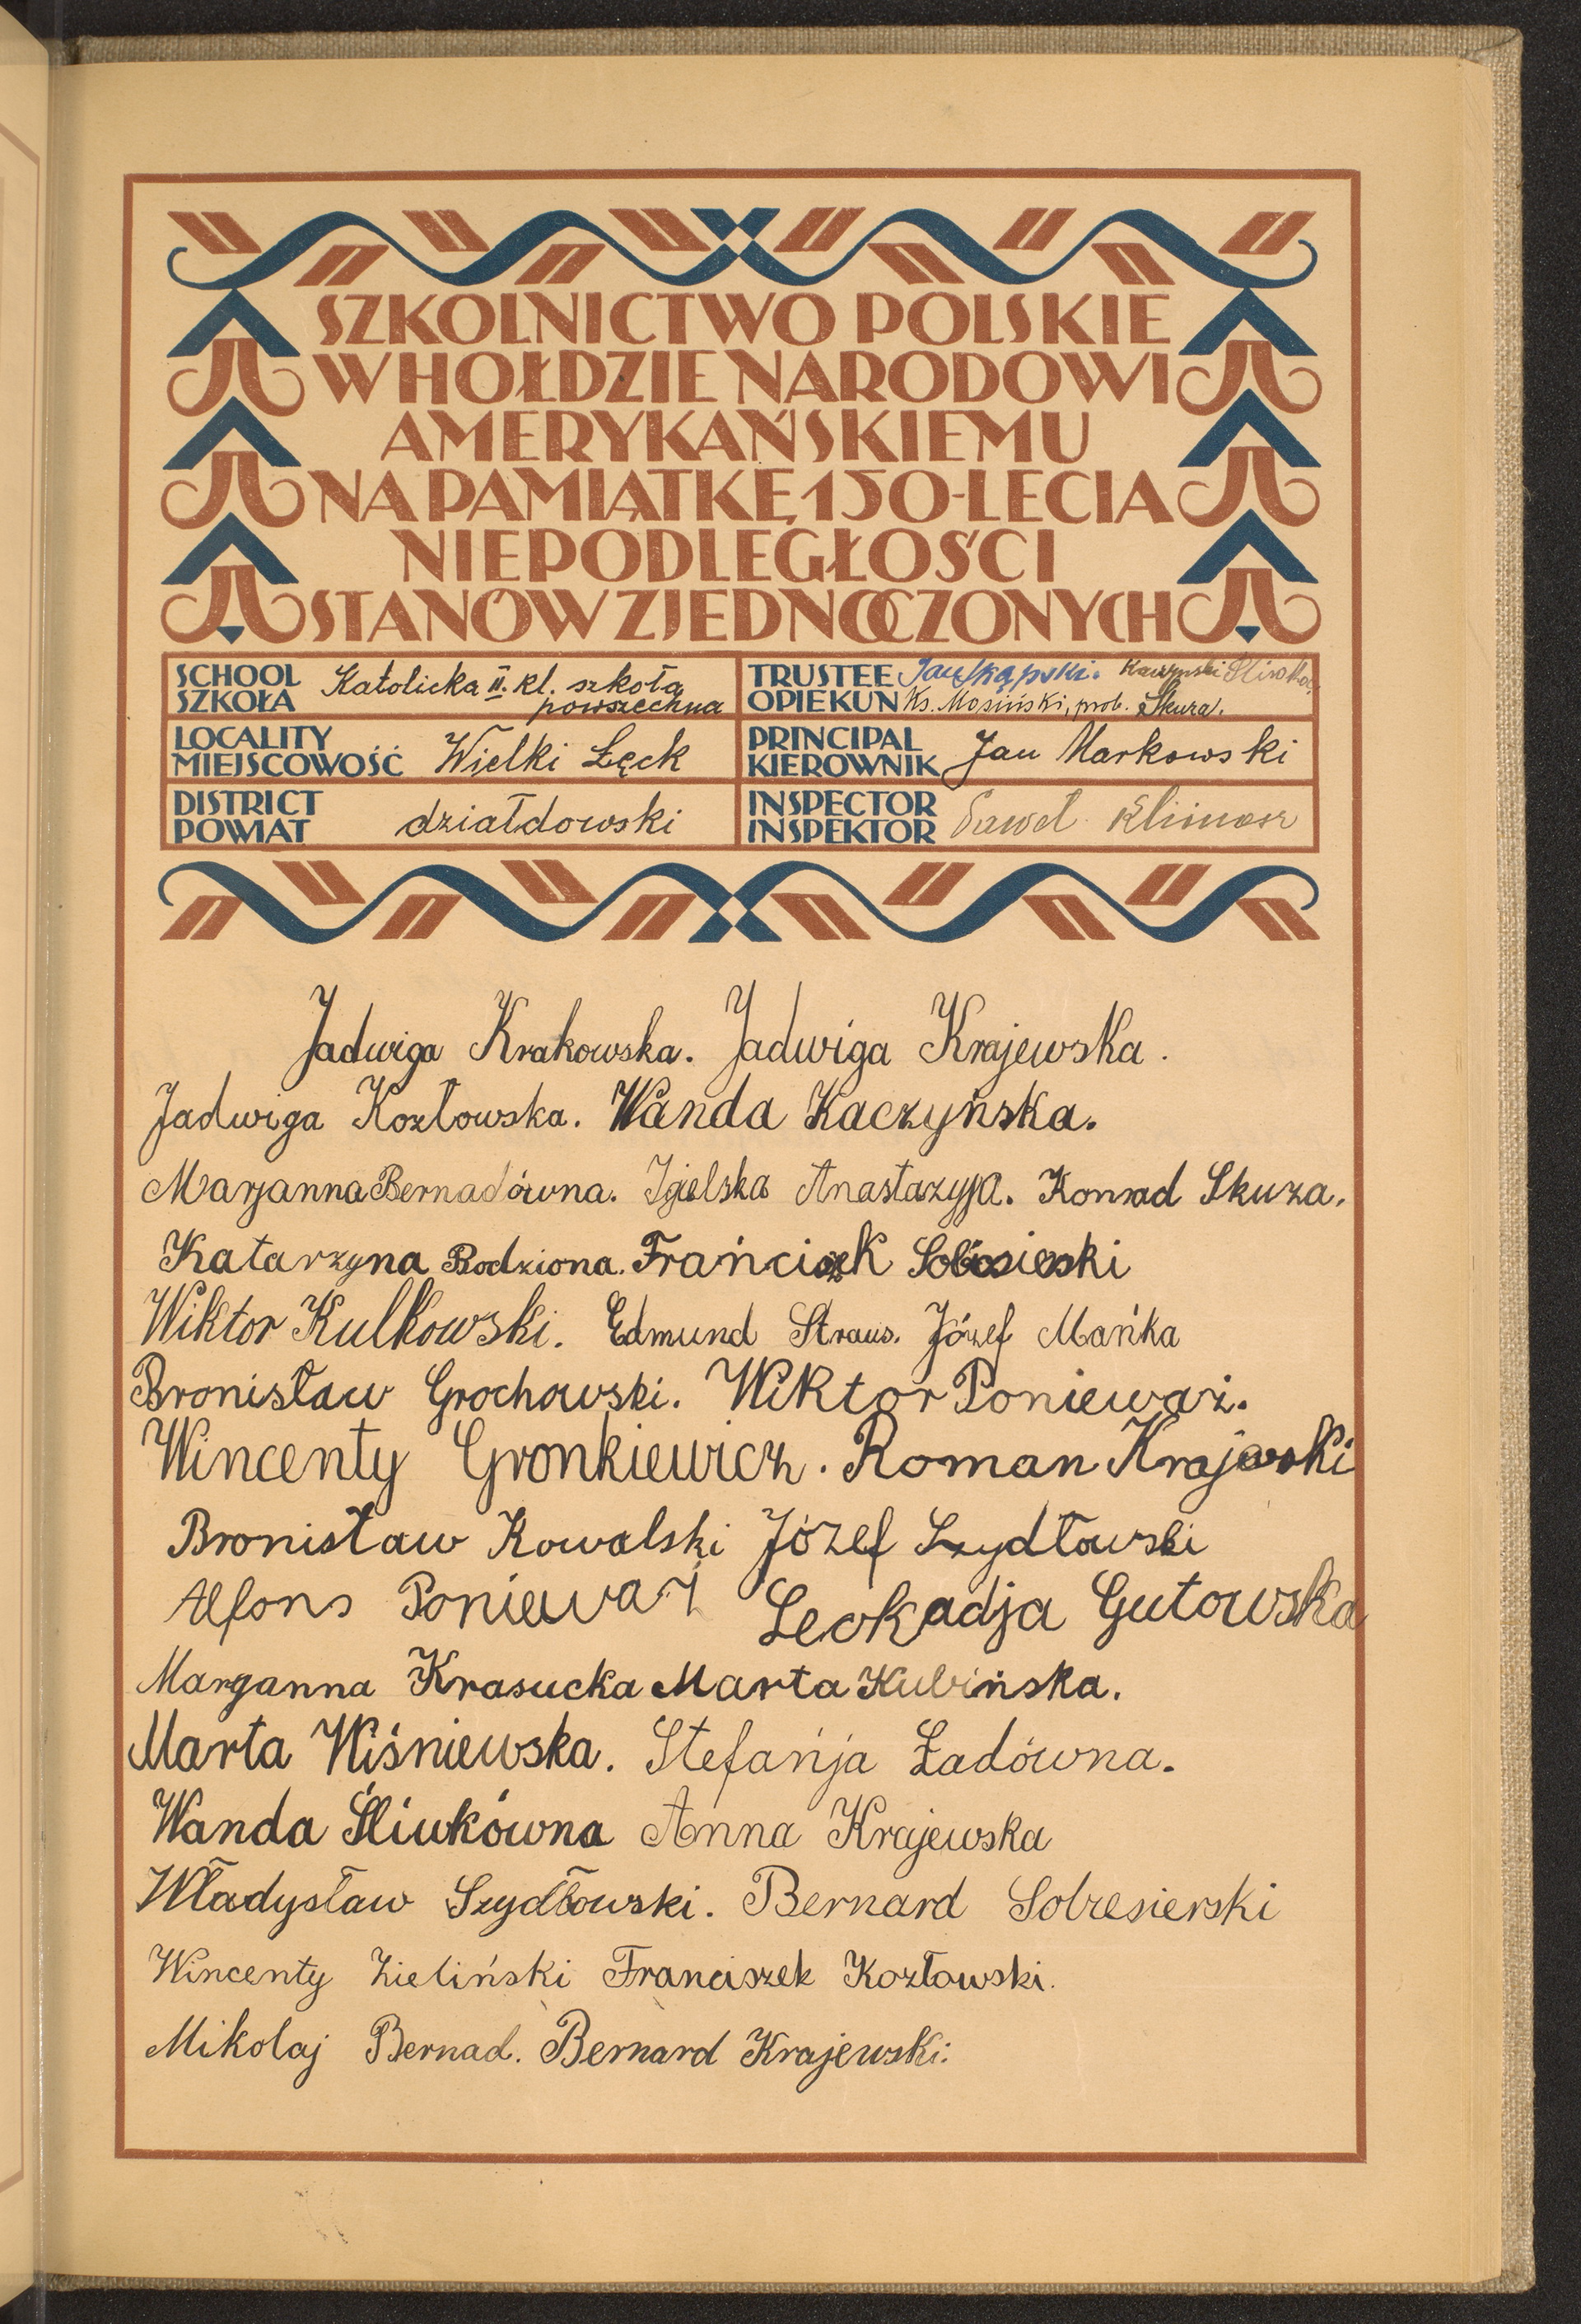 SZKOLNICTWO POLSKIE
W HOŁDZIE NARODOWI
AMERYKAŃSKIEMU
NA PAMIĄTKĘ 150-LECIA
NIEPODLEGŁOŚCI
STANÓW ZJEDNOCZONYCH
SCHOOL SZKOŁA Katolicka II. kl. szkoła powszechna
TRUSTEE OPIEKUN Kaczyński Śliwka Ks. Mosiński, prob. Skuza.
LOCALITY MIEJSCOWOŚĆ Wielki Łęck
PRINCIPAL KIEROWNIK Jan Markowski
DISTRICT POWIAT działdowski
INSPECTOR INSPEKTOR Paweł Klimosz
Jadwiga Krakowska. Jadwiga Krajewska.
Jadwiga Kozłowska. Wanda Kaczyńska.
Marjanna Bernadówna. Igielska Anastazyja. Konrad Skuza.
Katarzyna Rodziona. Frańciszek
Wiktor Kulkowski. Edmund Straus. Józef Mańka
Bronisław Grochowski. Wiktor Ponieważ.
Wincenty Gronkiewicz. Roman Krajewski
Bronisław Kowalski Józef Szydłowski
Alfons Ponieważ Leokadja Gutowska
Marganna Krasucka Marta Kubińska.
Marta Wiśniewska. Stefańja Ładówna.
Wanda Śliwkówna Anna Krajewska
Władysław Szydłowski. Bernard Sobresierski
Wincenty Zieliński Franciszek Kozłowski.
Mikolaj Bernad. Bernard Krajewski.